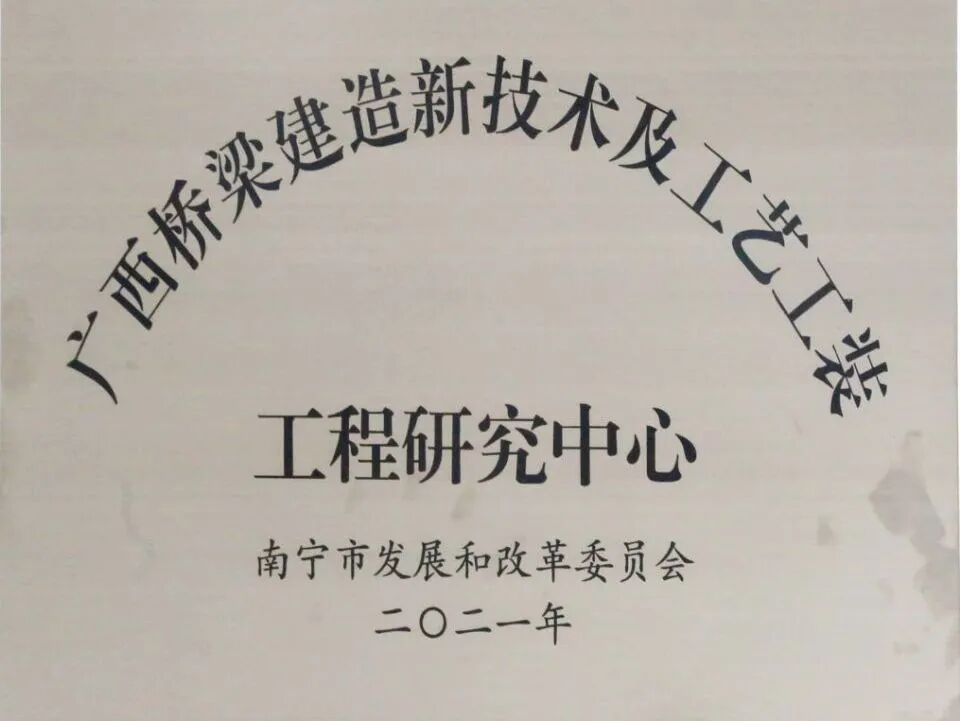 广西桥梁建造新技术及工艺工装
工程研究中心
南宁市发展和改革委员会
二〇二一年